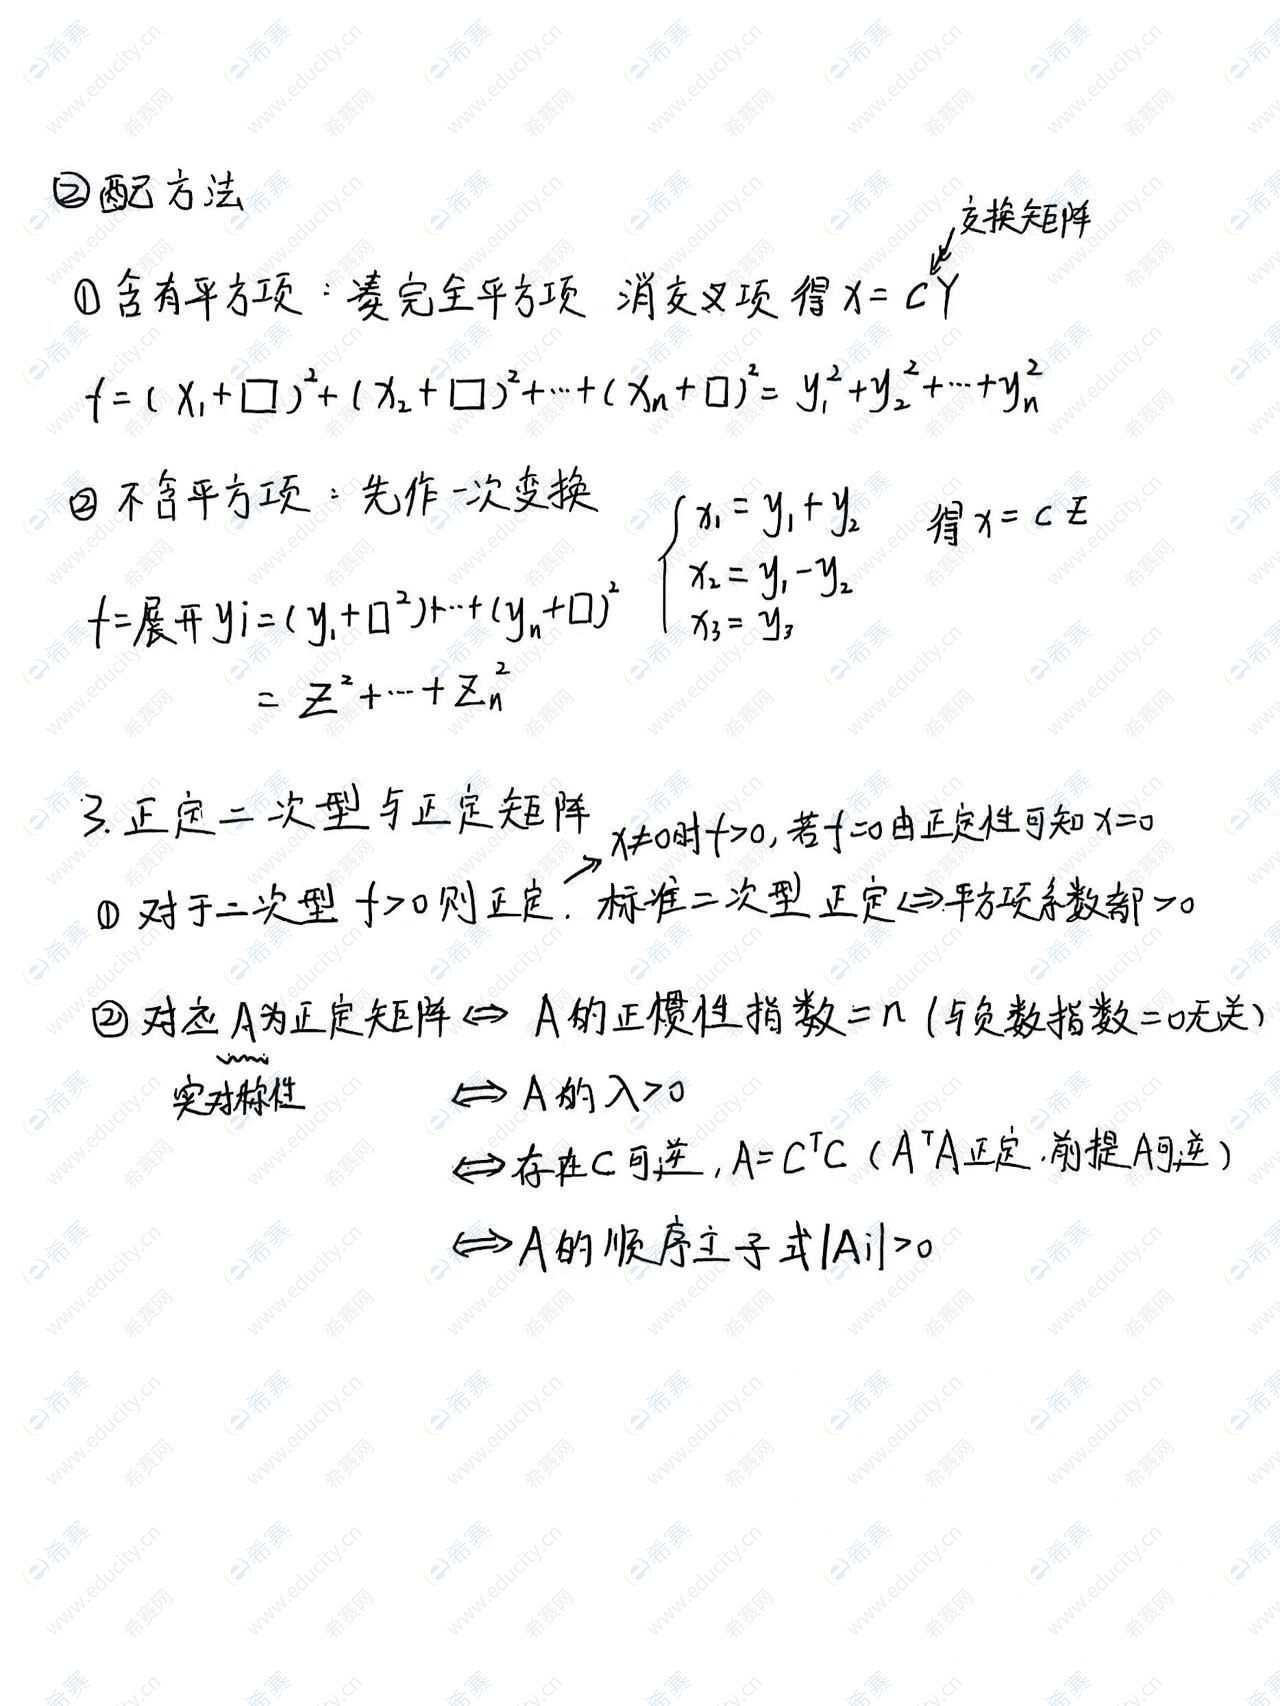 ②配方法
变换矩阵
①含有平方项：凑完全平方项 消交叉项 得 x=CY
f=(x₁+□)²+(x₂+□)²+…+(xₙ+□)²=y₁²+y₂²+…+yₙ²
②不含平方项：先作一次变换 { x₁=y₁+y₂ 得 x=CZ
x₂=y₁-y₂
x₃=y₃
f=展开yi=(y₁+□²)+…+(yₙ+□)²
=Z²+…+Zₙ²
3.正定二次型与正定矩阵
x≠0时f>0,若f=0由正定性可知x=0
①对于二次型 f>0则正定.标准二次型正定⇔平方项系数都>0
②对应A为正定矩阵⇔A的正惯性指数=n(与负数指数=0无关)
实对称性
⇔A的λ>0
⇔存在C可逆,A=CᵀC(AᵀA正定.前提A可逆)
⇔A的顺序主子式|Ai|>0
希赛
www.educity.cn
希赛网